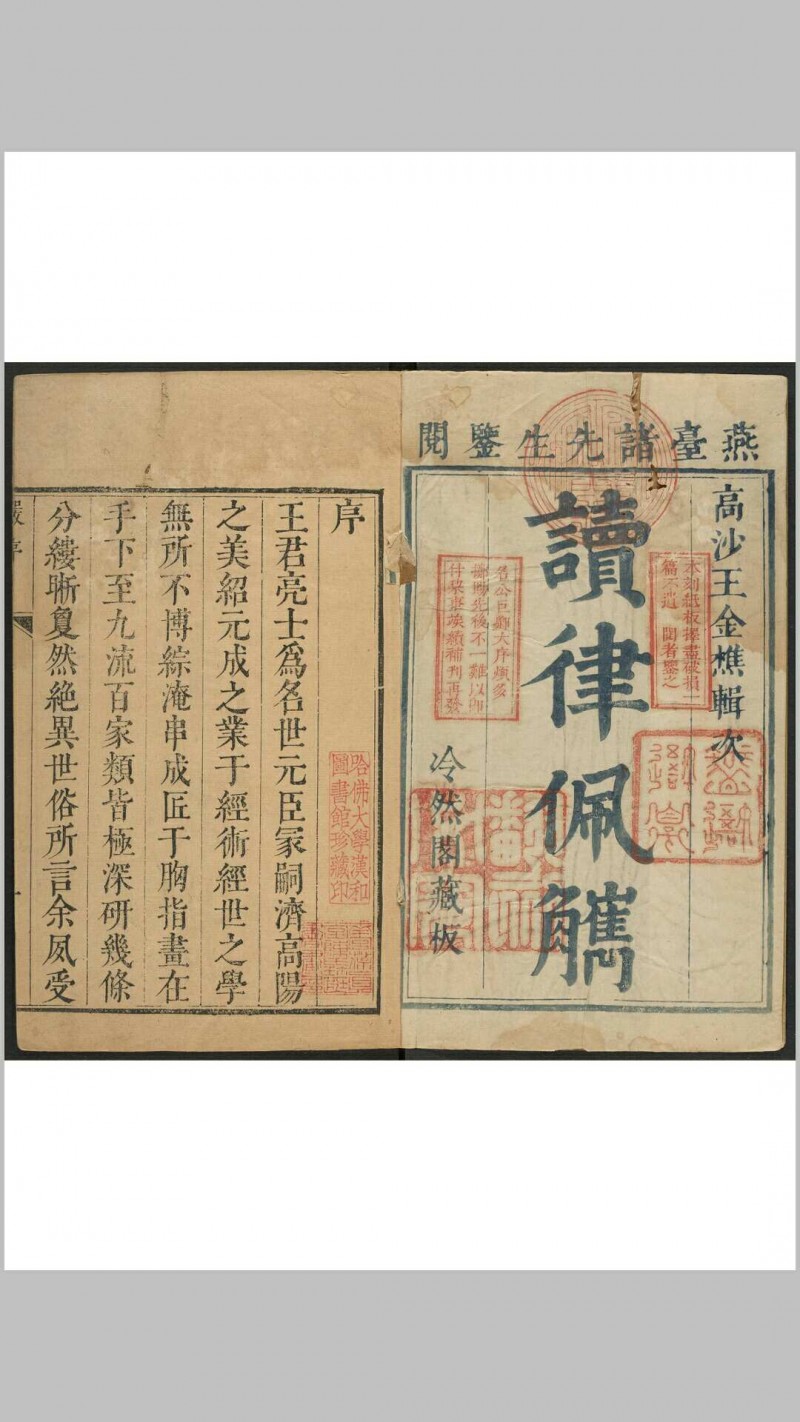 燕臺諸先生鑒閱
高沙王金樵輯次
讀律佩觿
冷然閣藏板
本刻紙板擇盡破損一
篇不遺 閱者鑒之
名公巨卿大序頗多
後不一難以
續補刊再發
序
王君亮士爲名世元臣冢嗣濟高陽
之美紹元成之業于經術經世之學
無所不博綜淹串成匠于胸指畫在
手下至九流百家類皆極深研幾條
分縷晣敻然絶異世俗所言余夙受
哈佛大學漢和
圖書館珍藏印